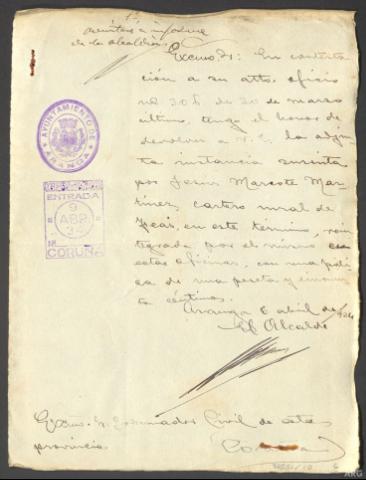 informe
de la alcaldía
Excmo. Sr: En contesta
ción a su atto. oficio
nº 306 de 20 de marzo
último, tengo el honor de
devolver a V. E. la adjun
ta instancia suscrita
por Jesus Marcote Mar
tinez, cartero rural de
Feás, en este término, rein
tegrada por el mismo
estas oficinas, con una póli
za de una peseta y cincuen
ta céntimos.
Aranga 6 abril de 1934
El Alcalde
AYUNTAMIENTO DE
ARANGA
ENTRADA
9
ABR
34
Nº
CORUÑA
Excmo. Sr. Gobernador Civil de esta
provincia
Coruña
ARG